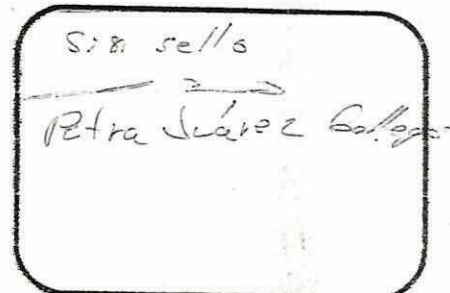 Sin sello
Petra Juárez Gallegos